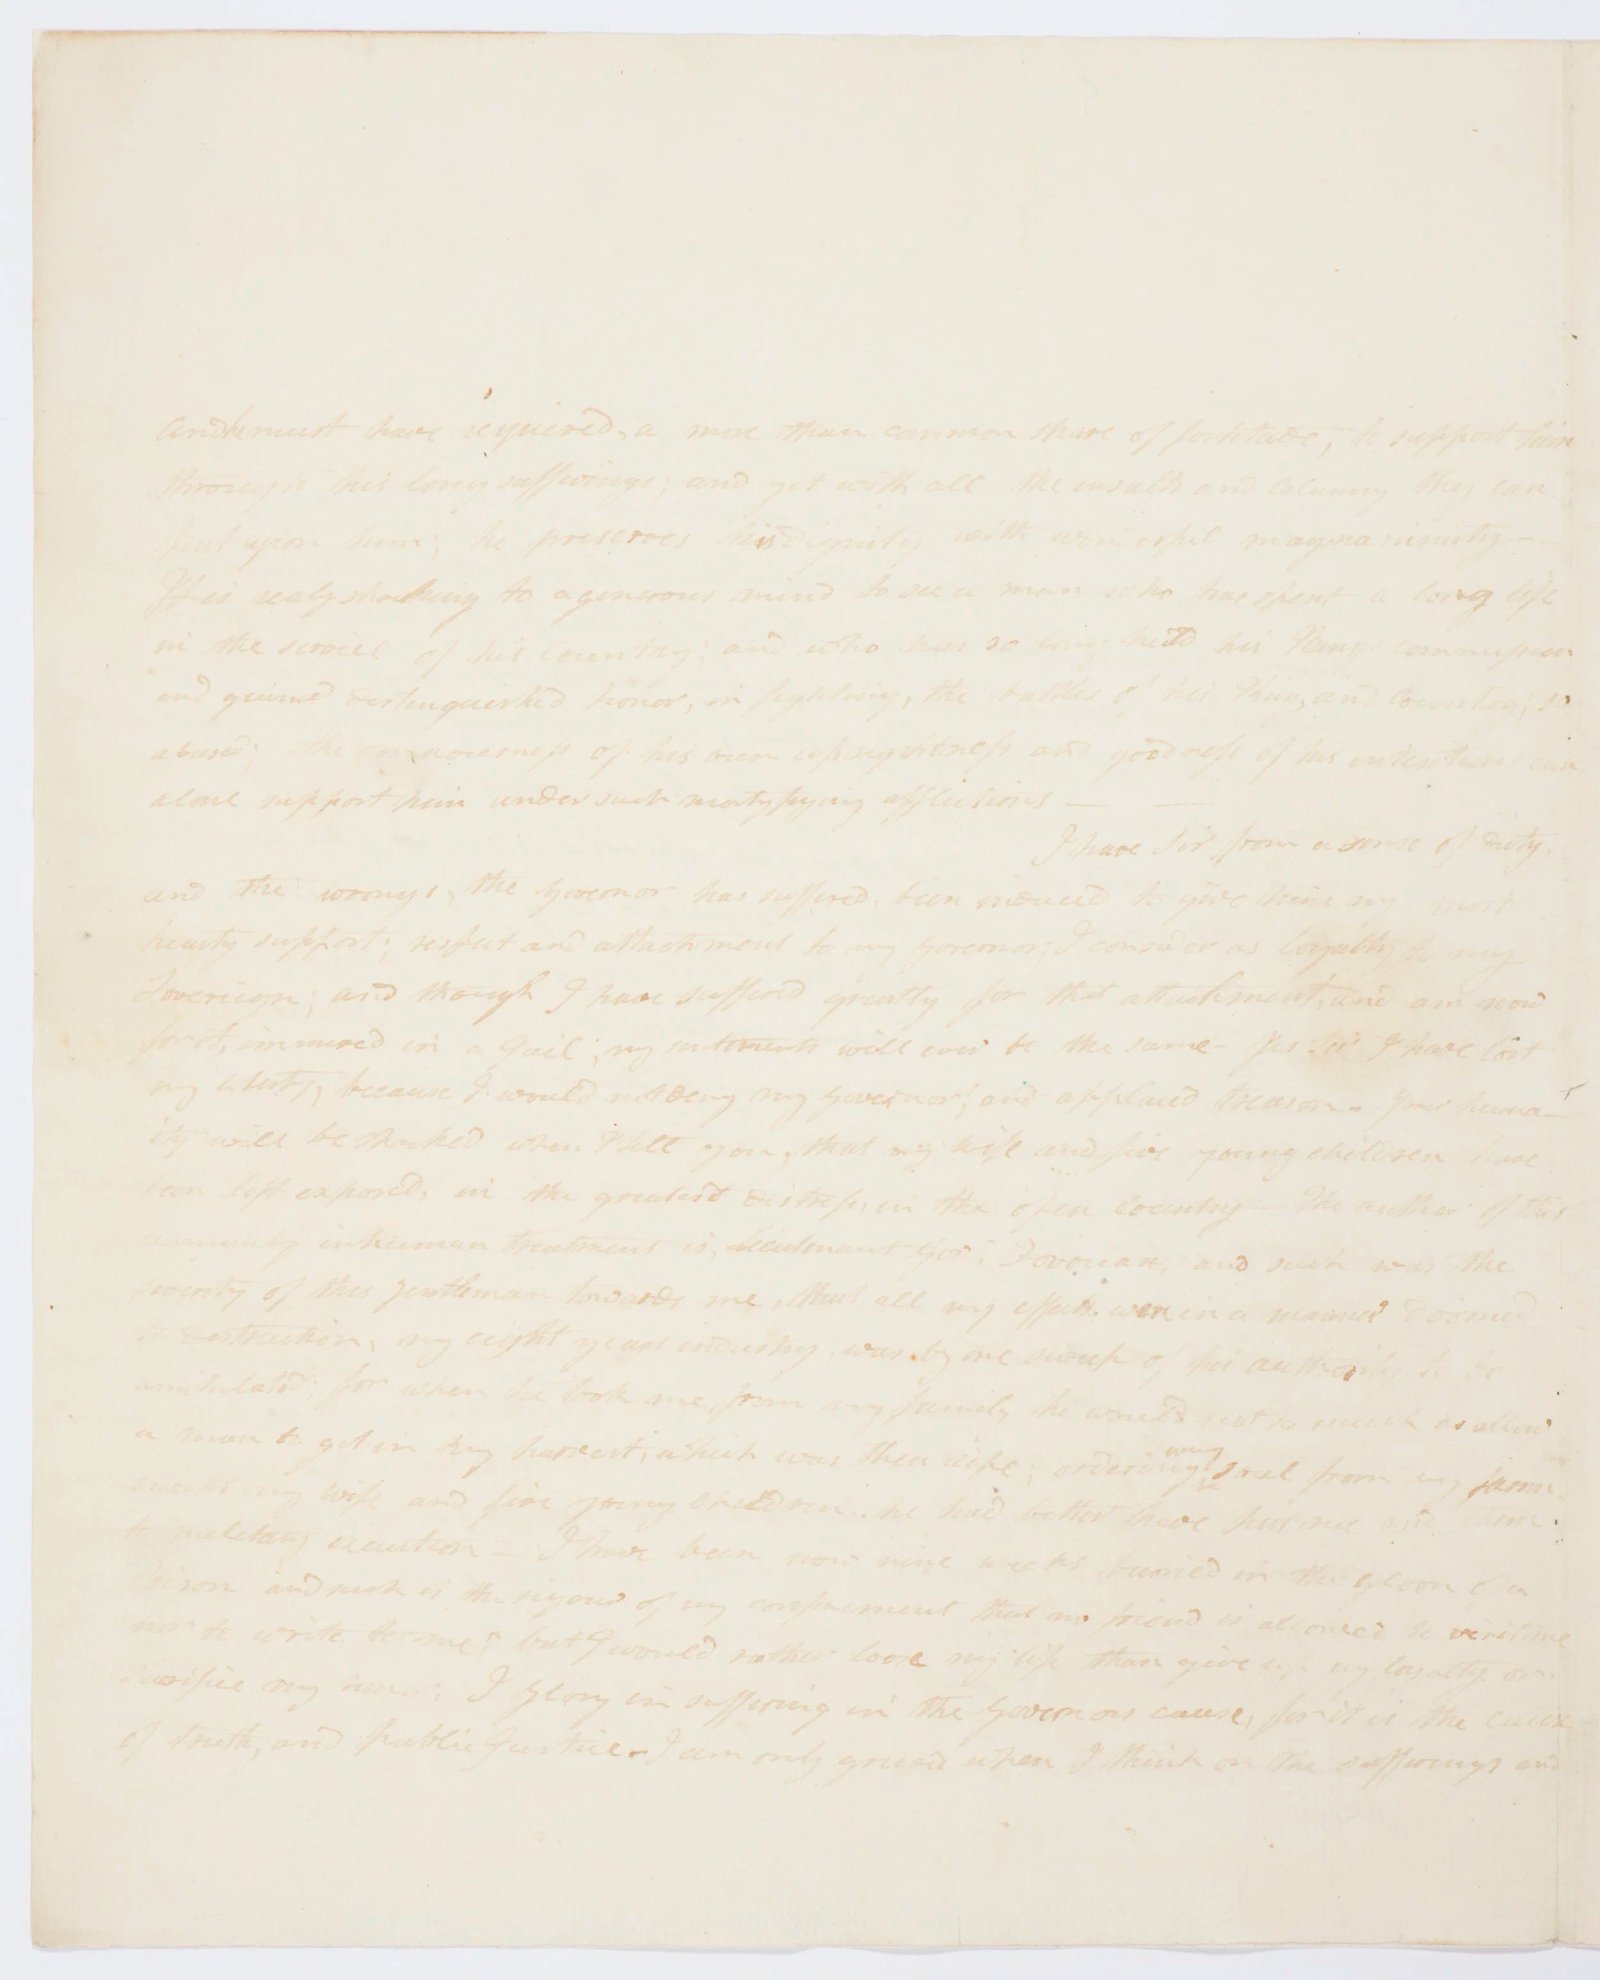 and must have required, a more than common share of fortitude, to support him
through his long sufferings; and yet with all the insults and calumny they can
put upon him; he preserves his dignity with wonderful magnanimity —
It is realy shocking to a generous mind to see a man who has spent a long life
in the service of his Country; and who has so long held his Kings commission
and gained distinguished honor, in fighting, the battles of his King, and Country; so
abused; the consciousness of his own uprightness and goodness of his intentions can
alone support him under such mortyfying afflictions — —
I have Sir from a sense of duty,
and the wrongs, the Governor has suffered, been induced to give him my most
hearty support; respect and attachment to my Governor; I consider as loyalty to my
Sovereign; and though I have suffered greatly for that attachment, and am now
for it, immured in a Gail; my sentiments will ever be the same - Yes Sir I have lost
my liberty, because I would not deny my Governor, and applaud treason. Your human-
ity will be shocked when I tell you, that my wife and five young children have
been left exposed, in the greatest distress, in the open Country — The author of this
inhuman treatment is, Lieutenant Govr. Foveaux, and such was the
severity of this Gentleman towards me, that all my effects were in a manner doomed
to destruction, my eight years industry, was by one sweep of his authority to be
annihilated; for when he took me from my family he would not so much as allow
a man to get in my harvest, which was then ripe; ordering every soul from my farm
except my wife and five young children. he had better have put me and them
to military execution — I have been now nine weeks buried in the gloom of a
Prison and such is the rigour of my confinement that no friend is allowed to visit me
nor to write to me; but I would rather loose my life than give up my loyalty or
sacrifice my honor; I glory in suffering in the Governors cause, for it is the cause
of truth, and public Justice. I am only grieved when I think on the sufferings and